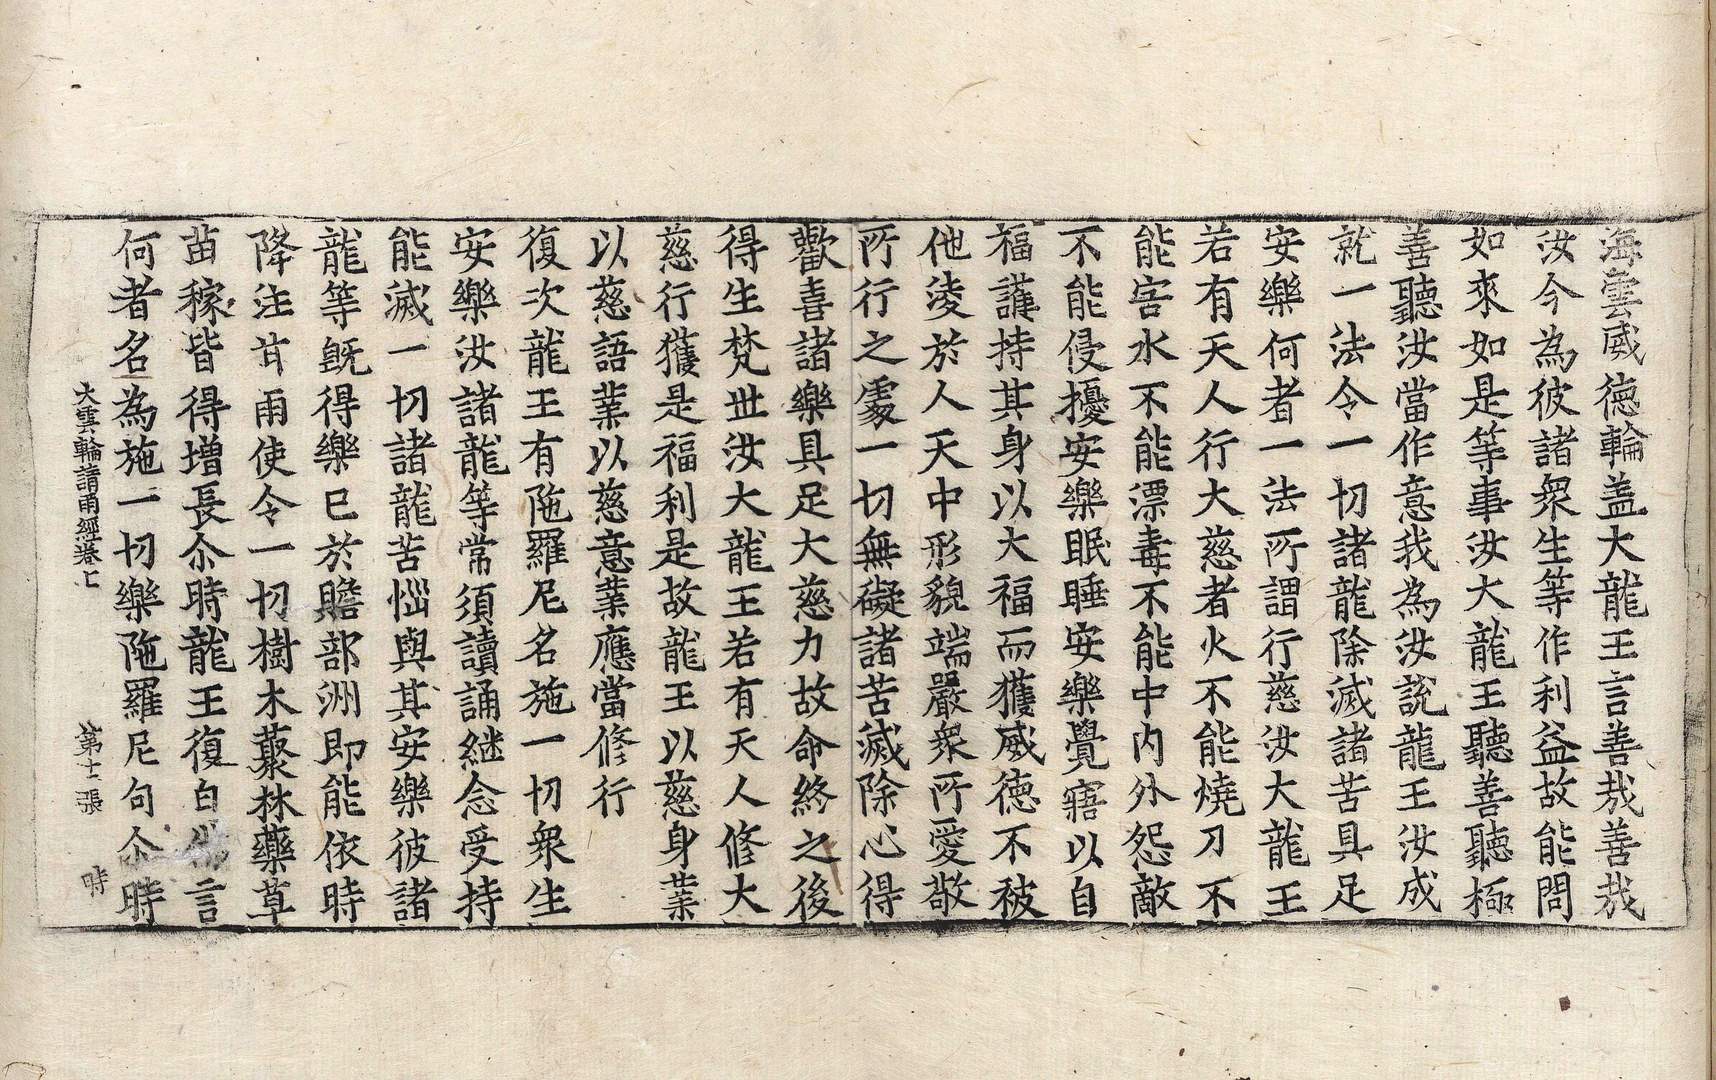 海雲威德輪盖大龍王言善哉善哉
汝今為彼諸眾生等作利益故能問
如來如是等事汝大龍王聽善聽極
善聽汝當作意我為汝說龍王汝成
就一法令一切諸龍除滅諸苦具足
安樂何者一法所謂行慈汝大龍王
若有天人行大慈者火不能燒刀不
能害水不能漂毒不能中內外怨敵
不能侵擾安樂眠睡安樂覺寤以自
福護持其身以大福而獲威德不被
他淩於人天中形貌端嚴眾所愛敬
所行之處一切無礙諸苦滅除心得
歡喜諸樂具足大慈力故命終之後
得生梵世汝大龍王若有天人修大
慈行獲是福利是故龍王以慈身業
以慈語業以慈意業應當修行
復次龍王有陁羅尼名施一切眾生
安樂汝諸龍等常須讀誦繼念受持
能滅一切諸龍苦惱與其安樂彼諸
龍等既得樂已於贍部洲即能依時
降注甘雨使令一切樹木藂林藥草
苗稼皆得增長尒時龍王復白佛言
何者名為施一切樂陁羅尼句尒時
大雲輪請雨經卷上 第十二張 時